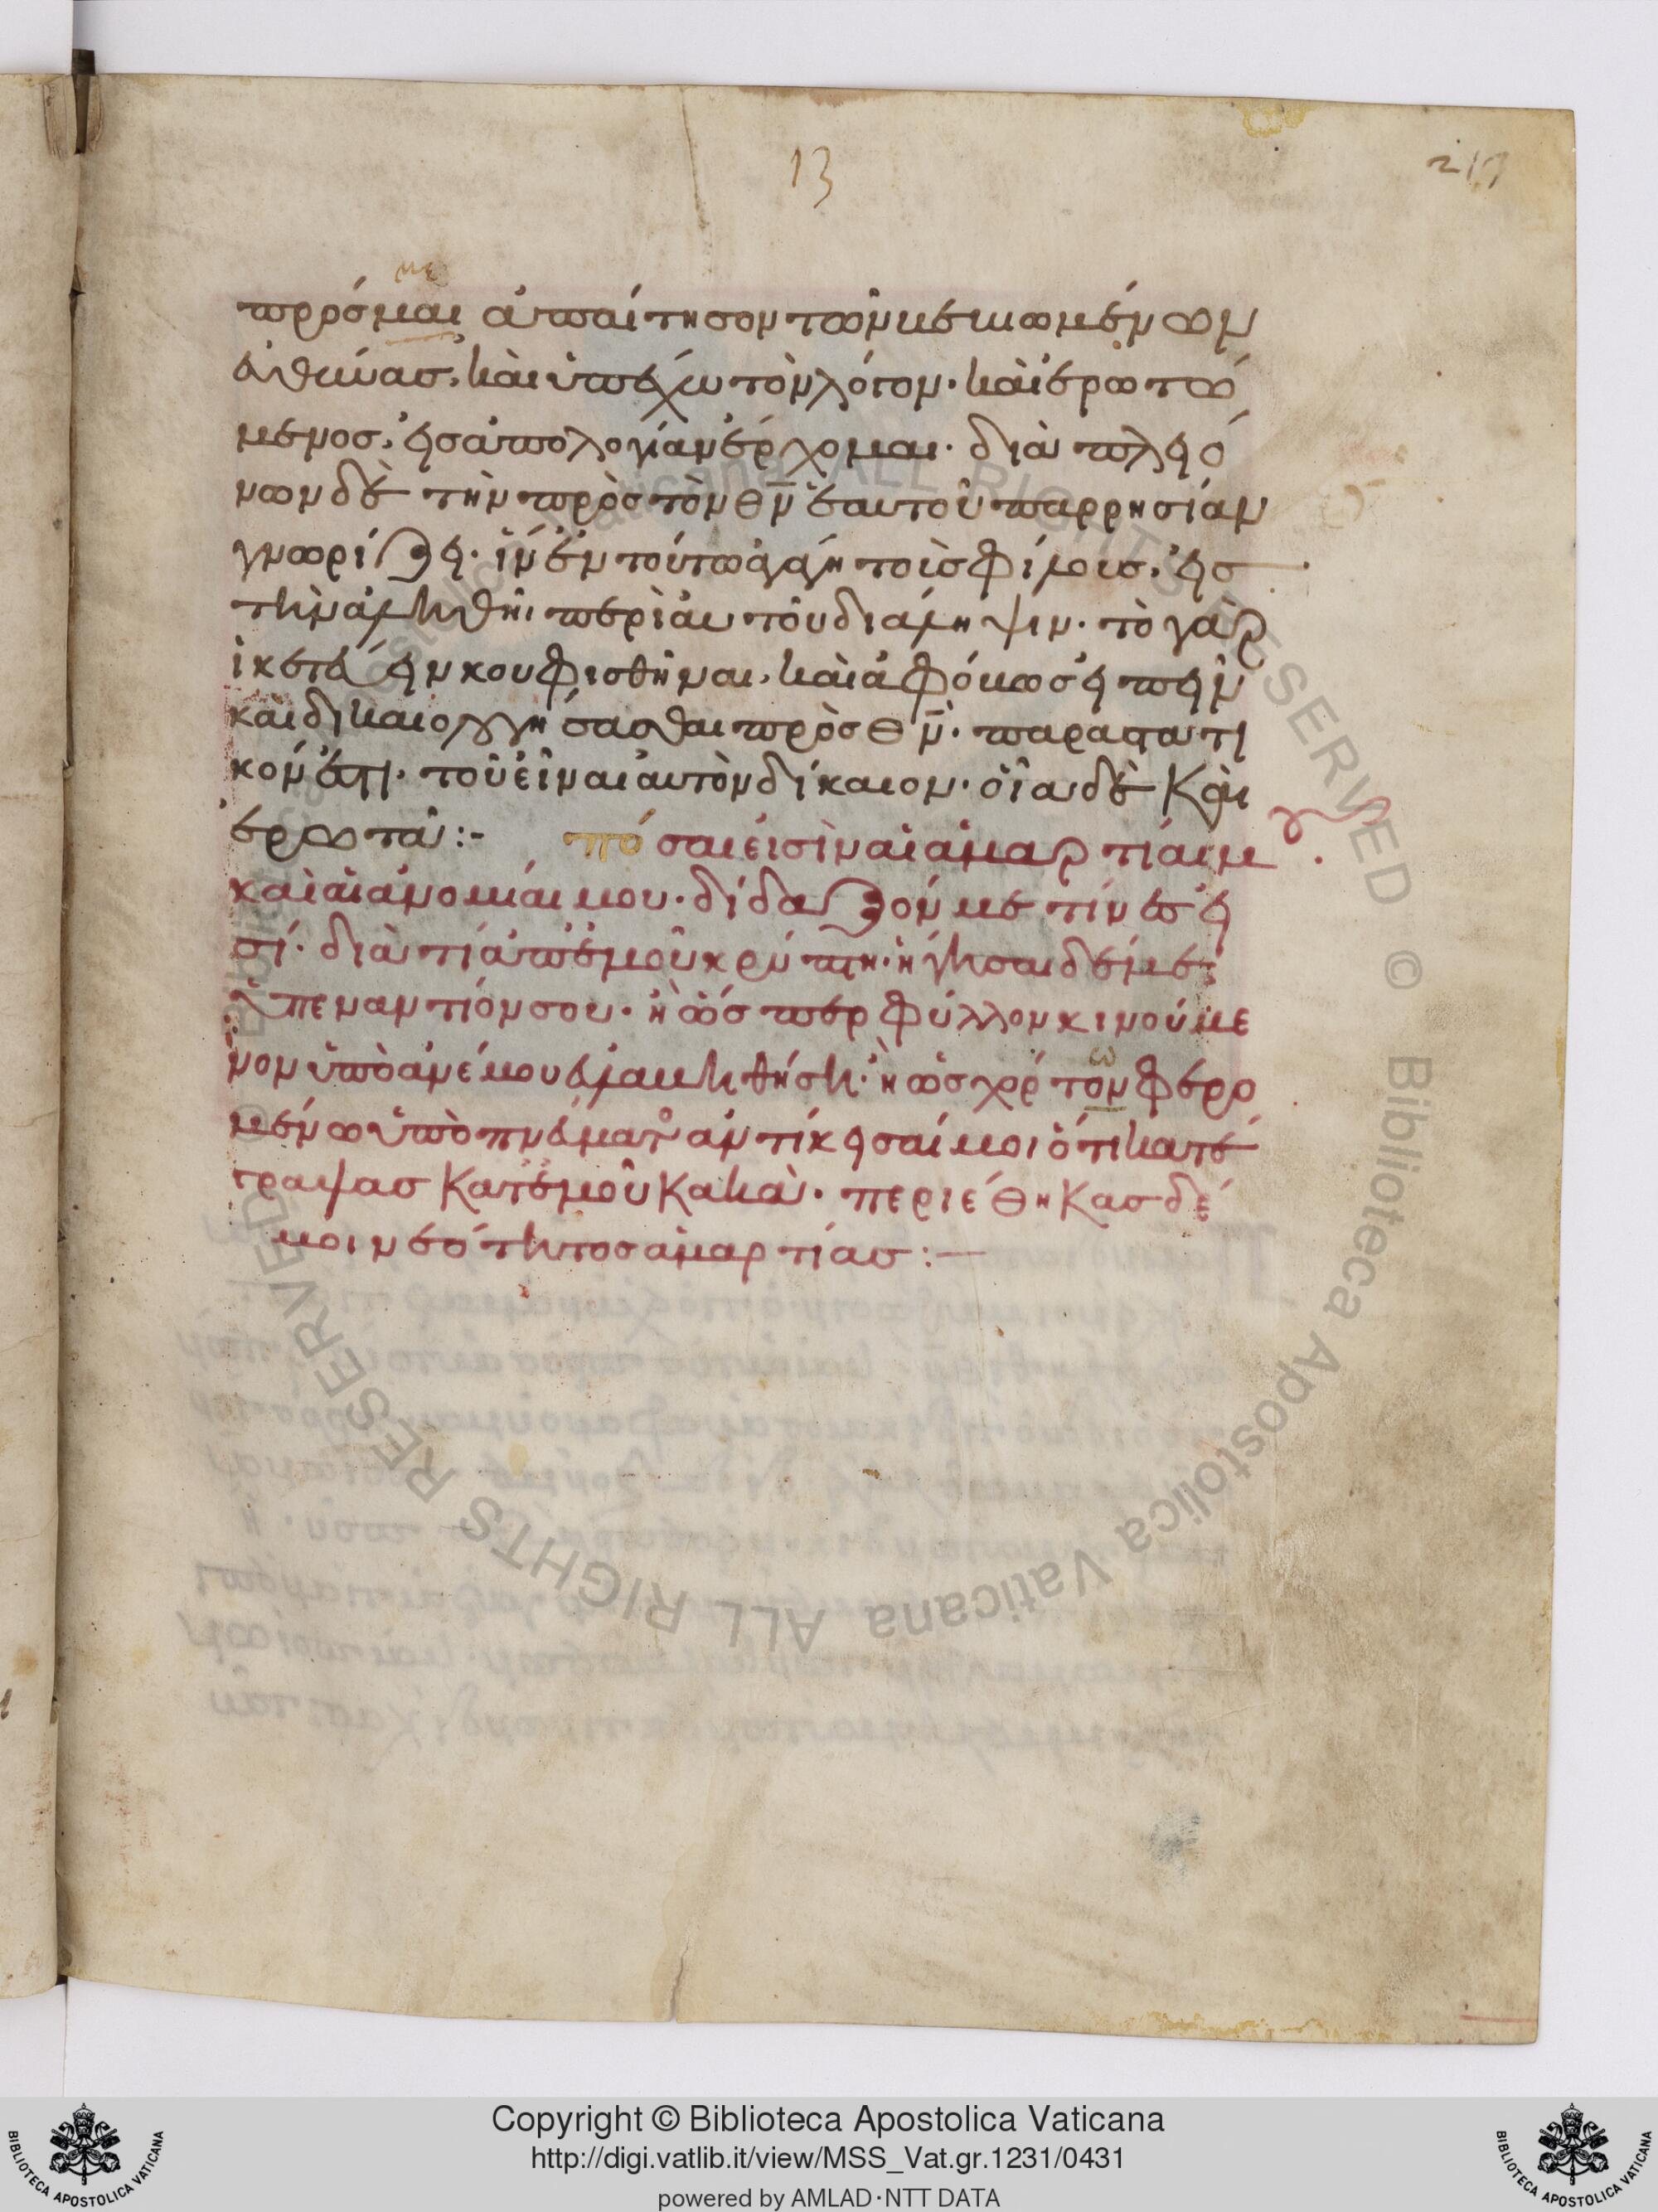 13
217
με
πρόσμαι ἀπαίτησον τῶν μετιωμένων
εὐθύνας, καὶ ὑπέχω τὸν λόγον· καὶ ἐρωτώ
μενος, εἰς ἀπολογίαν ἔρχομαι· διὰ πλειό
νων δὲ τὴν πρὸς τὸν θν̄ ἑαυτοῦ παρρησίαν
γνωρίζει· ἵν' ἐν τούτω ἀλγῆ τοῖς φίλοις, εἰς
τὴν ἀληθῆ περὶ αὐτοῦ διάληψιν· τὸ γὰρ
ἱκετεύειν κουφισθῆναι, καὶ ἀφόβως εἰπεῖν
καὶ δικαιολογήσασθαι πρὸς θν̄· παραστατι
κόν ἐστι· τοῦ εἶναι αὐτὸν δίκαιον· οἷα δὲ καὶ
ἐρωτᾶ:-   πόσαι εἰσὶν αἱ ἁμαρτίαι μου
καὶ αἱ ἀνομίαι μου· δίδαξόν με τίνες εἰ
σί· διὰ τί ἀπ' ἐμοῦ κρύπτη· ἥγησαι δέ με
ὑπεναντίον σου· ἢ ὥσπερ φύλλον κινούμε
νον ὑπὸ ἀνέμου εὐλαβηθήση· ἢ ὡς χόρτον φερο
ω
μένω ὑπὸ πνεύματος ἀντίκεισαί μοι ὅτι κατέ
γραψας κατ' ἐμοῦ κακά· περιέθηκας δέ
μοι νεότητος ἁμαρτίας:—
Copyright © Biblioteca Apostolica Vaticana
http://digi.vatlib.it/view/MSS_Vat.gr.1231/0431
powered by AMLAD·NTT DATA
BIBLIOTECA APOSTOLICA VATICANA
BIBLIOTECA APOSTOLICA VATICANA
© Biblioteca Apostolica Vaticana ALL RIGHTS RESERVED